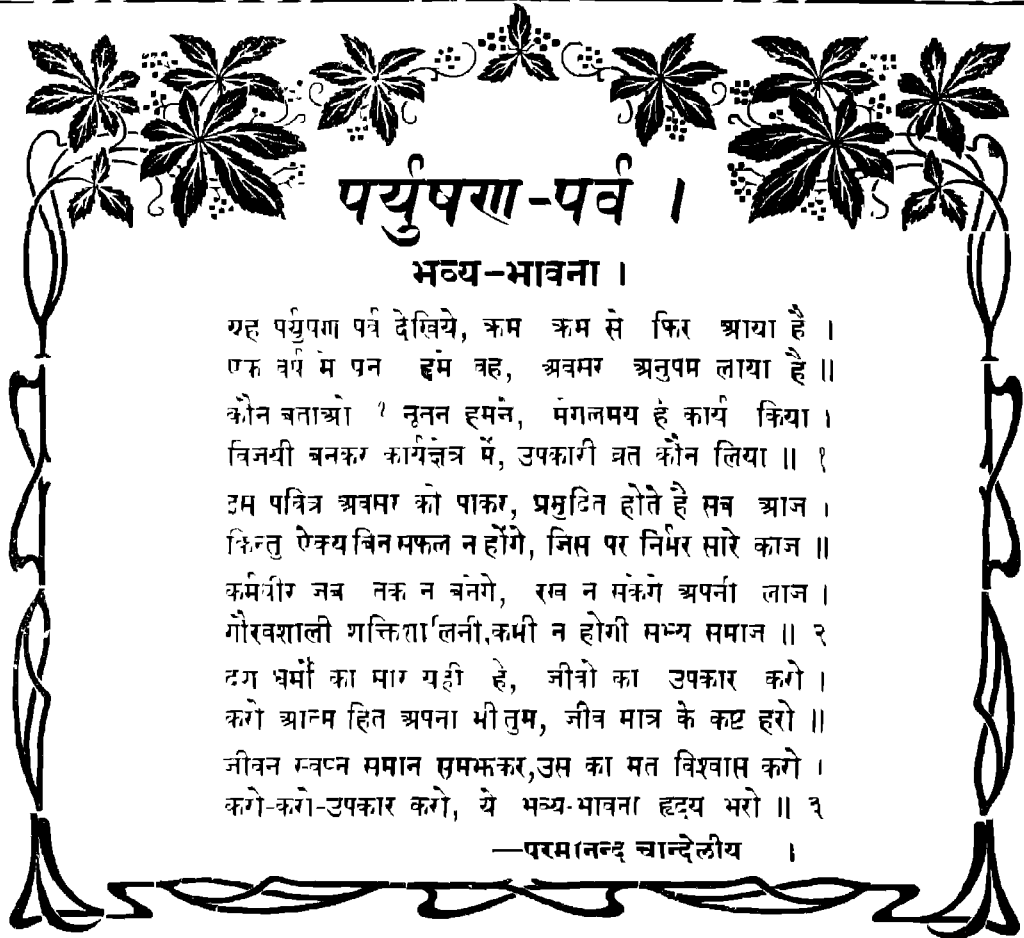 पर्युषण-पर्व ।
भव्य-भावना ।
यह पर्युषण पर्व देखिये, क्रम क्रम से फिर आया है ।
एक वर्ष मे पुन हमे वह, अवसर अनुपम लाया है ॥
कौन बताओ ? नूतन हमने, मंगलमय है कार्य किया ।
विजयी बनकर कार्यक्षेत्र में, उपकारी व्रत कौन लिया ॥ १
इस पवित्र अवसर को पाकर, प्रमुदित होते है सब आज ।
किन्तु ऐक्य बिन सफल न होंगे, जिस पर निर्भर सारे काज ॥
कर्मवीर जब तक न बनेंगे, रख न सकेंगे अपनी लाज ।
गौरवशाली शक्तिशालिनी, कभी न होगी सभ्य समाज ॥ २
दश धर्मों का सार यही है, जीवो का उपकार करो ।
करो आत्म हित अपना भी तुम, जीव मात्र के कष्ट हरो ॥
जीवन स्वप्न समान समझकर, उस का मत विश्वास करो ।
करो-करो-उपकार करो, ये भव्य-भावना हृदय भरो ॥ ३
—परमानन्द चान्देलीय ।